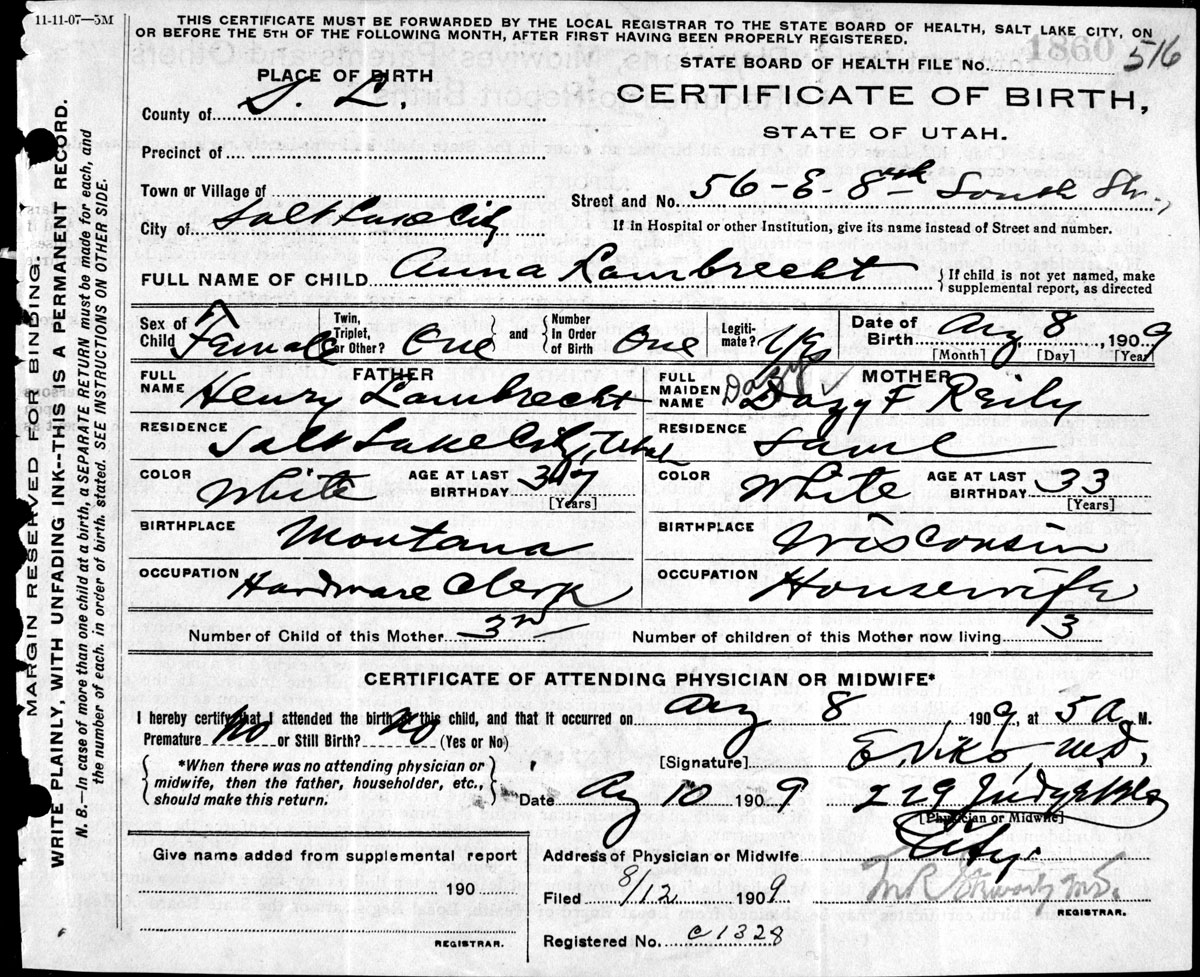 11-11-07—3M
THIS CERTIFICATE MUST BE FORWARDED BY THE LOCAL REGISTRAR TO THE STATE BOARD OF HEALTH, SALT LAKE CITY, ON
OR BEFORE THE 5TH OF THE FOLLOWING MONTH, AFTER FIRST HAVING BEEN PROPERLY REGISTERED.
1860
STATE BOARD OF HEALTH FILE No. 516
PLACE OF BIRTH
CERTIFICATE OF BIRTH,
STATE OF UTAH.
County of S. L.
Precinct of
Town or Village of
Street and No. 56-E-8th South Str.,
City of Salt Lake City
If in Hospital or other Institution, give its name instead of Street and number.
FULL NAME OF CHILD Anna Lambrecht
{If child is not yet named, make
supplemental report, as directed
Sex of Child Female
Twin, Triplet, or Other? One
and
Number In Order of Birth One
Legiti-mate? Yes
Date of Birth Aug 8, 1909
[Month] [Day] [Year]
FATHER
FULL NAME Henry Lambrecht
RESIDENCE Salt Lake City, Utah
COLOR White
AGE AT LAST BIRTHDAY 37
[Years]
BIRTHPLACE Montana
OCCUPATION Hardware Clerk
MOTHER
FULL MAIDEN NAME Dazy F Reily
RESIDENCE Same
COLOR White
AGE AT LAST BIRTHDAY 33
[Years]
BIRTHPLACE Wisconsin
OCCUPATION Housewife
Number of Child of this Mother 3rd
Number of children of this Mother now living 3
CERTIFICATE OF ATTENDING PHYSICIAN OR MIDWIFE*
I hereby certify that I attended the birth of this child, and that it occurred on Aug 8 1909, at 5 A. M.
Premature No or Still Birth? No (Yes or No)
*When there was no attending physician or
midwife, then the father, householder, etc.,
should make this return.
[Signature] E. Viko, M.D.
Date Aug 10 1909
229 Judge Bldg
[Physician or Midwife]
Address of Physician or Midwife City
Give name added from supplemental report
190
REGISTRAR.
Filed 8/12 1909
REGISTRAR.
Registered No. c1328
MARGIN RESERVED FOR BINDING
WRITE PLAINLY, WITH UNFADING INK--THIS IS A PERMANENT RECORD.
N. B.—In case of more than one child at a birth, a SEPARATE RETURN must be made for each, and
the number of each, in order of birth, stated. SEE INSTRUCTIONS ON OTHER SIDE.